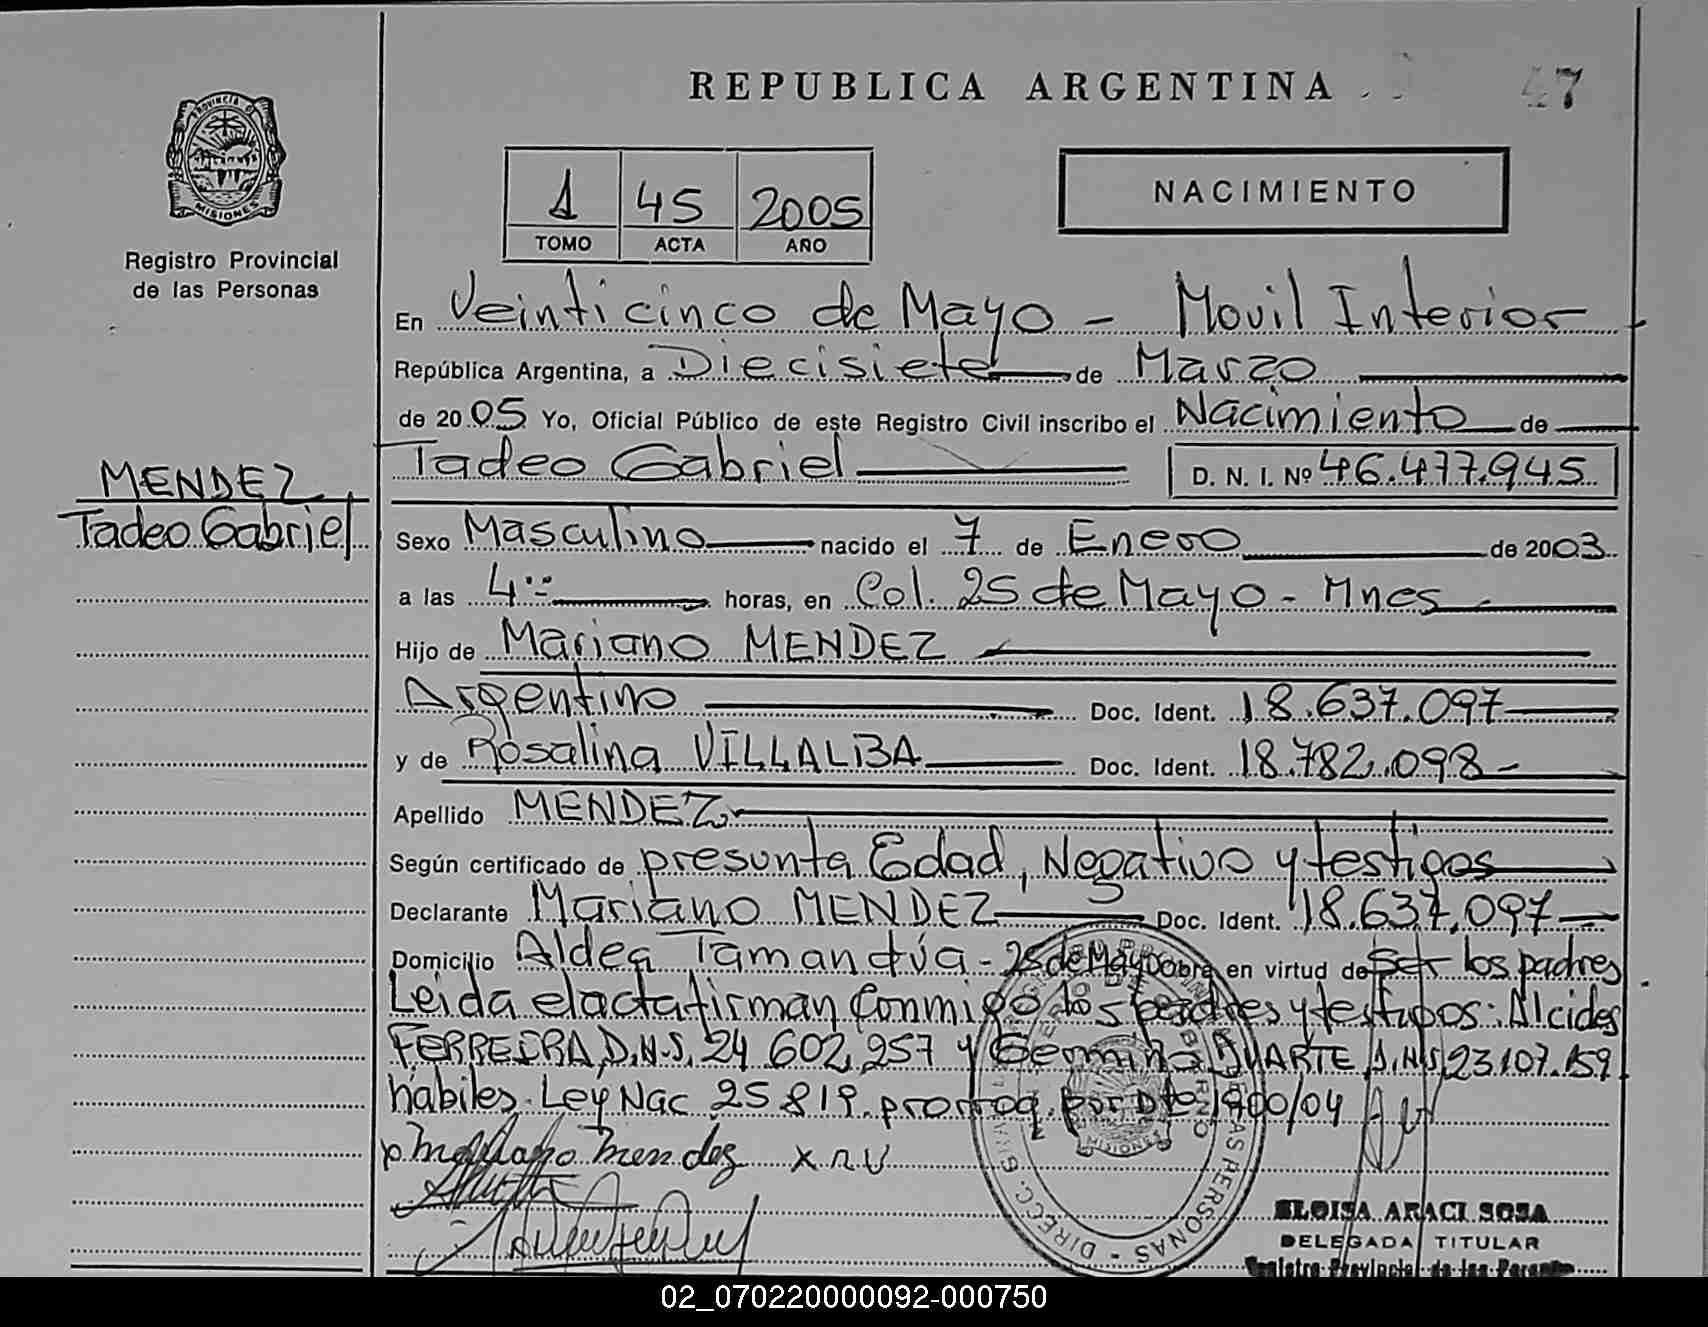 REPUBLICA ARGENTINA
47
PROVINCIA DE
MISIONES
Registro Provincial
de las Personas
1 45 2005
TOMO ACTA AÑO
NACIMIENTO
En Veinticinco de Mayo - Movil Interior
República Argentina, a Diecisiete de Marzo
de 2005 Yo, Oficial Público de este Registro Civil inscribo el Nacimiento de
Tadeo Gabriel D. N. I. Nº 46.477.945
MENDEZ
Tadeo Gabriel
Sexo Masculino nacido el 7 de Enero de 2003
a las 4 horas, en Col. 25 de Mayo - Mnes
Hijo de Mariano MENDEZ
Argentino Doc. Ident. 18.637.097
y de Rosalina VILLALBA Doc. Ident. 18.782.098-
Apellido MENDEZ
Según certificado de presunta Edad, Negativo y testigos
Declarante Mariano MENDEZ Doc. Ident. 18.637.097
Domicilio Aldea Tamandúa - 25 de Mayo Obra en virtud de Ser los padres
Leida el acta firman Conmigo los padres y testigos: Alcides
FERREIRA, D.N.I. 24.602.257 y DUARTE D.N.I 23.107.159
habiles. Ley Nac 25819. prorrog. por Dto 1900/04
Mendez x R V
DIRECC. PERSONAS
ELOISA ARACI SOSA
DELEGADA TITULAR
Registro Provincial de las Personas
02_070220000092-000750